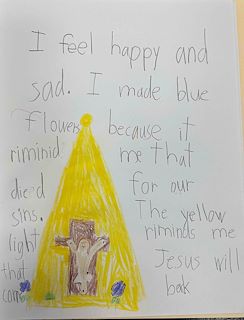 I feel happy and
sad. I made blue
flowers because it
riminid me that
died for our
sins. The yellow
light riminds me
that Jesus will
come bak